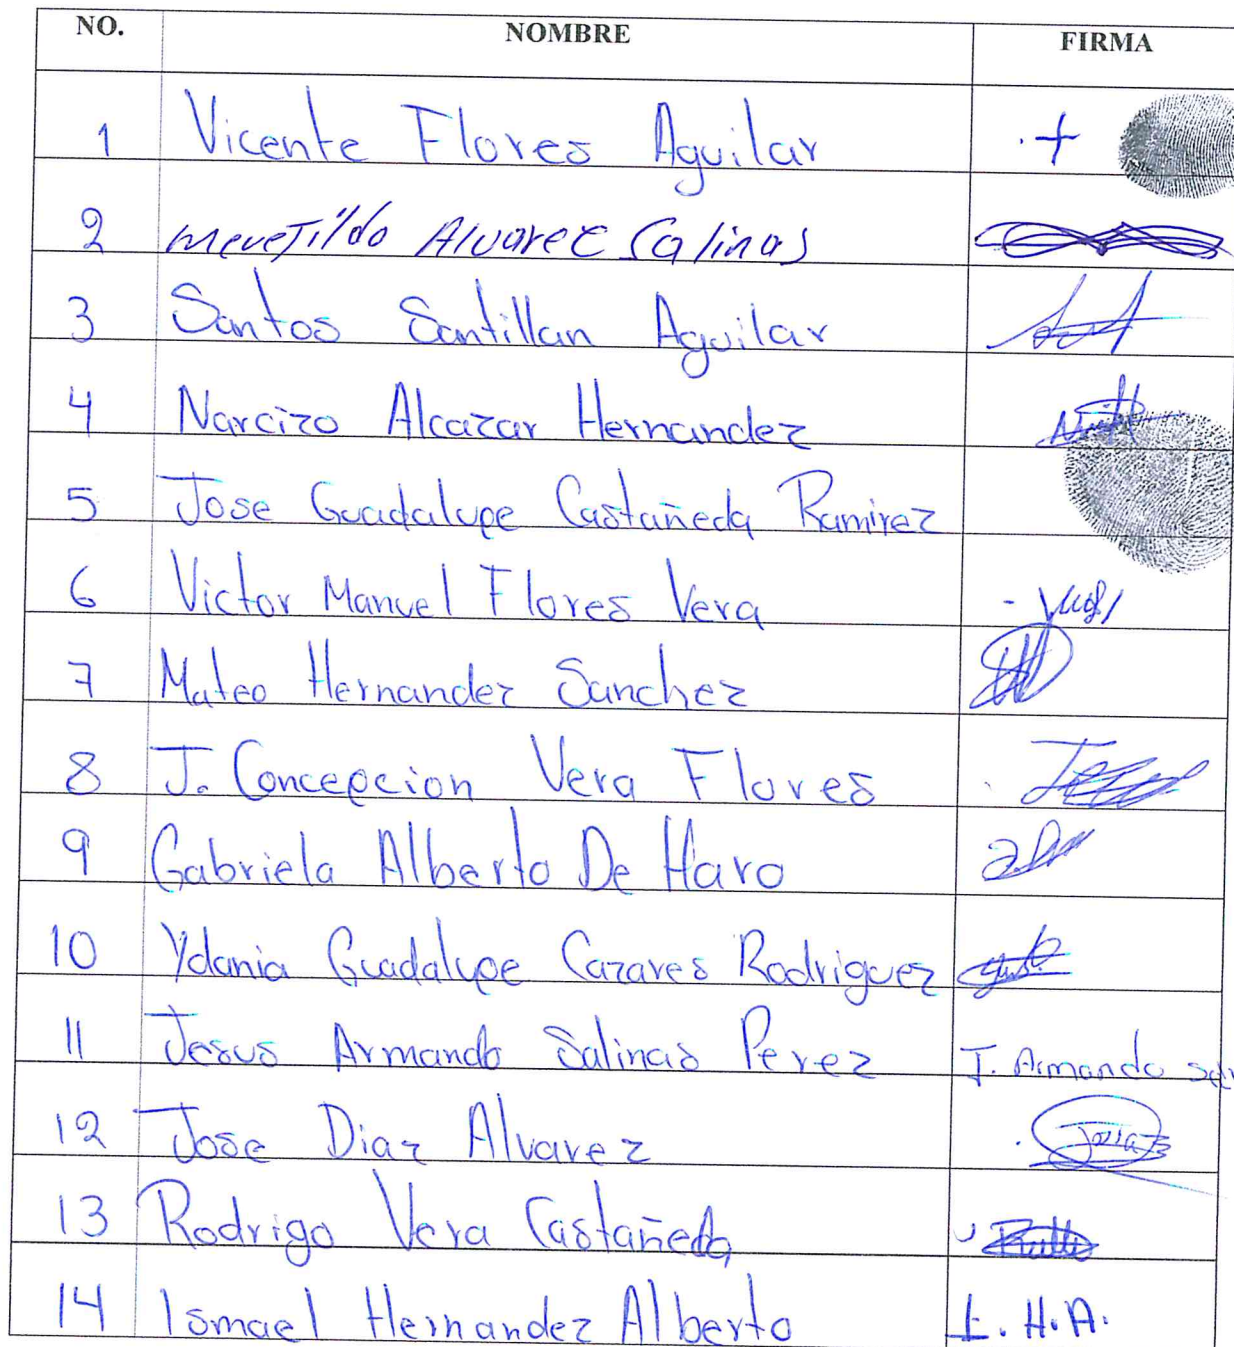 NO. NOMBRE FIRMA
1 Vicente Flores Aguilar
2 Merejildo Alvarez Salinas
3 Santos Santillan Aguilar
4 Narcizo Alcazar Hernandez
5 Jose Guadalupe Castañeda Ramirez
6 Victor Manuel Flores Vera
7 Mateo Hernandez Sanchez
8 J. Concepcion Vera Flores
9 Gabriela Alberto De Haro
10 Ydania Guadalupe Cazares Rodriguez
11 Jesus Armando Salinas Perez J. Armando
12 Jose Diaz Alvarez
13 Rodrigo Vera Castañeda
14 Ismael Hernandez Alberto I. H. A.